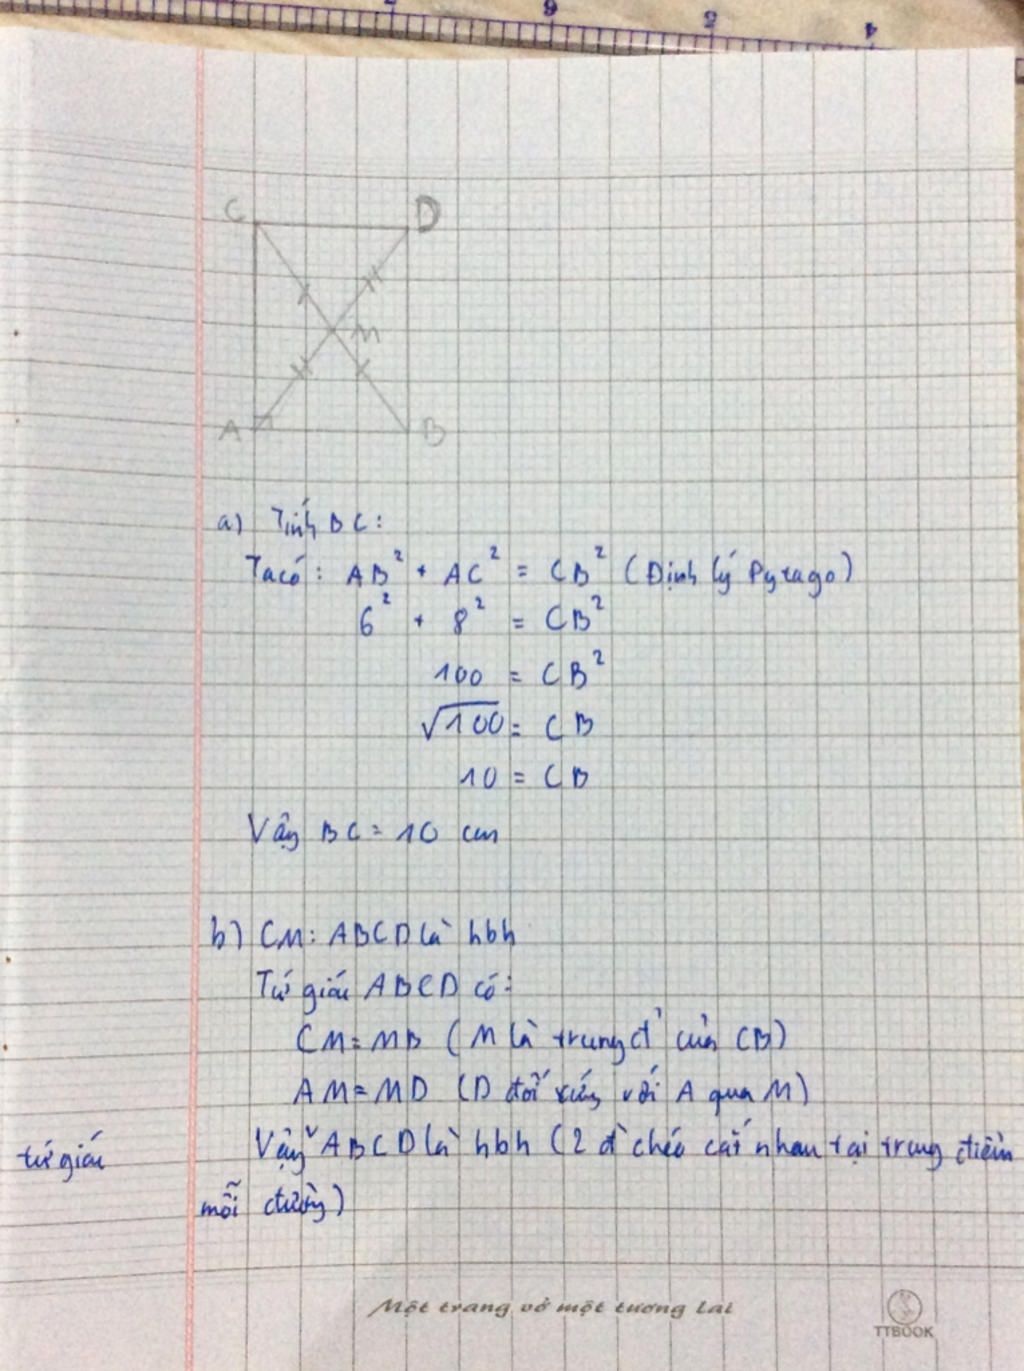 7 6 5 4
C D
M
A B
a) Tính BC:
Ta có: AB² + AC² = CB² (Định lý Pytago)
6² + 8² = CB²
100 = CB²
√100 = CB
10 = CB
Vậy BC = 10 cm
b) CM: ABCD là hbh
Tứ giác ABCD có:
CM = MB (M là trung đ' của CB)
AM = MD (D đối xứng với A qua M)
tứ giác Vậy ˅ ABCD là hbh (2 đ' chéo cắt nhau tại trung điểm
mỗi đường)
Một trang vở một tương lai
TTBOOK